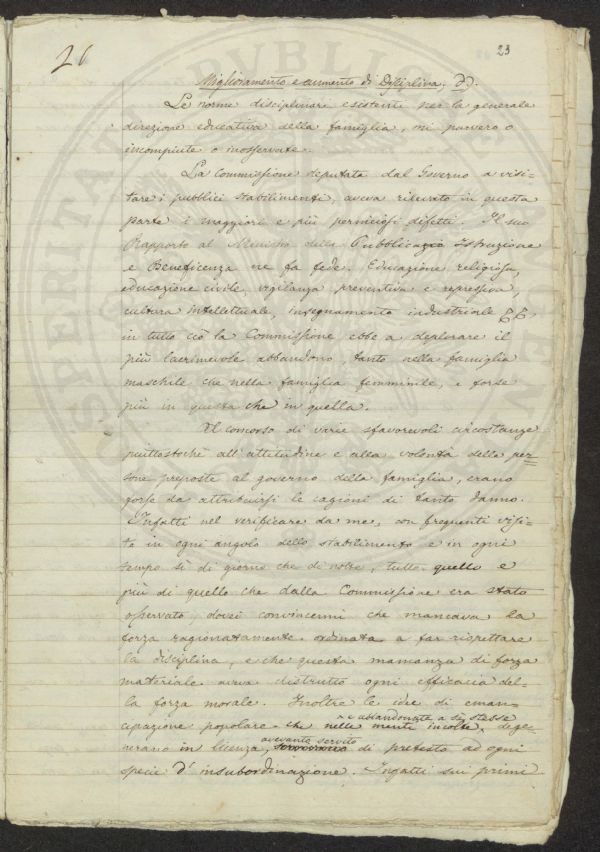 26
23
Miglioramento e aumento di Disciplina;
Le norme disciplinari esistenti per la generale
direzione educativa della famiglia, mi parvero o
incompiute o inosservate.
La Commissione deputata dal Governo a visi=
tare i pubblici stabilimenti, aveva rilevato in questa
parte i maggiori e più perniciosi difetti. Il suo
Rapporto al Ministro della Pubblica Istruzione
e Beneficenza ne fa fede. Educazione religiosa,
educazione civile, vigilanza preventiva e repressiva,
cultura intellettuale, insegnamento industriale
in tutto ciò la Commissione ebbe a deplorare il
più lacrimevole abbandono, tanto nella famiglia
maschile che nella famiglia femminile, e forse
più in questa che in quella.
Il concorso di varie sfavorevoli circostanze
piuttostochè all'attitudine e alla volontà delle per=
sone preposte al governo della famiglia, erano
forse da attribuirsi le cagioni di tanto danno.
Infatti nel verificare da me, con frequenti visi=
te in ogni angolo dello stabilimento e in ogni
tempo sì di giorno che di notte, tutto quello e
più di quello che dalla Commissione era stato
osservato, dovei convincermi che mancava la
forza ragionatamente ordinata a far rispettare
la disciplina, e che questa mancanza di forza
materiale aveva distrutto ogni efficacia del=
la forza morale. Inoltre le idee di eman=
cipazione popolare che nelle menti incolte, e abbandonate a se stesse dege=
nerano in licenza, avevano servito di pretesto ad ogni
specie d'insubordinazione. Infatti sui primi